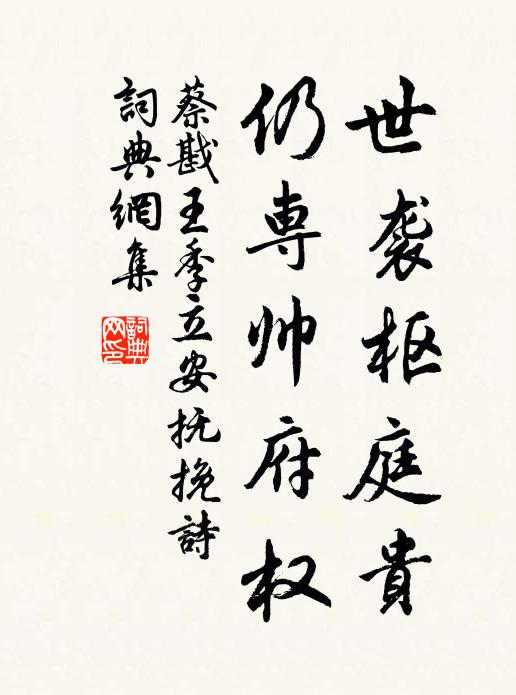 世袭枢庭貴
仍専帅府权
蔡戡王季立安抚挽詩
詞典網集
詞典网印